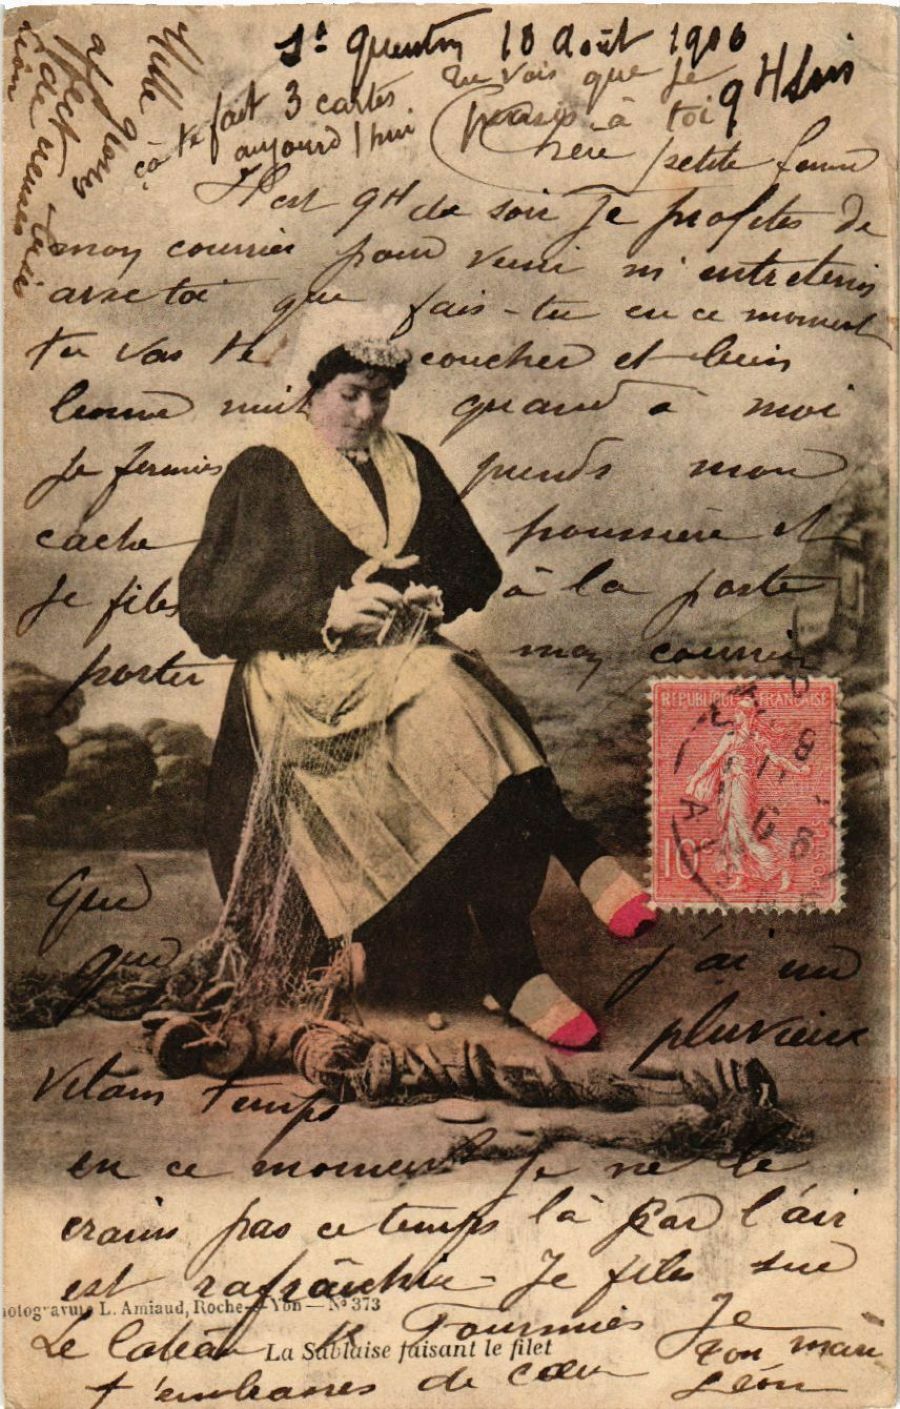 St Quentin 18 Août 1906
9 H Soir
Tu vois que je
pense à toi
çà te fait 3 cartes
aujourd'hui
Chère petite femme
Il est 9 H du soir Je profites de
mon courrier pour venir m'entretenir
avec toi que fais-tu en ce moment
tu vas te coucher et bien
bonne nuit quand à moi
Je fermes prends mon
cache poussière et
Je files à la poste
porter mon courrier
Que
que j'ai un
pluvieux
vilain temps
en ce moment Je ne le
crains pas ce temps là Car l'air
est rafraîchie - Je files sur
Le Cateau Fourmies Je
t'embrasses de cœur ton mari
Léon
Mille
affectueuses
Léon
REPUBLIQUE FRANÇAISE
10
POSTES
hotogravure L. Amiaud, Roche-s-Yon — N° 373
La Sablaise faisant le filet